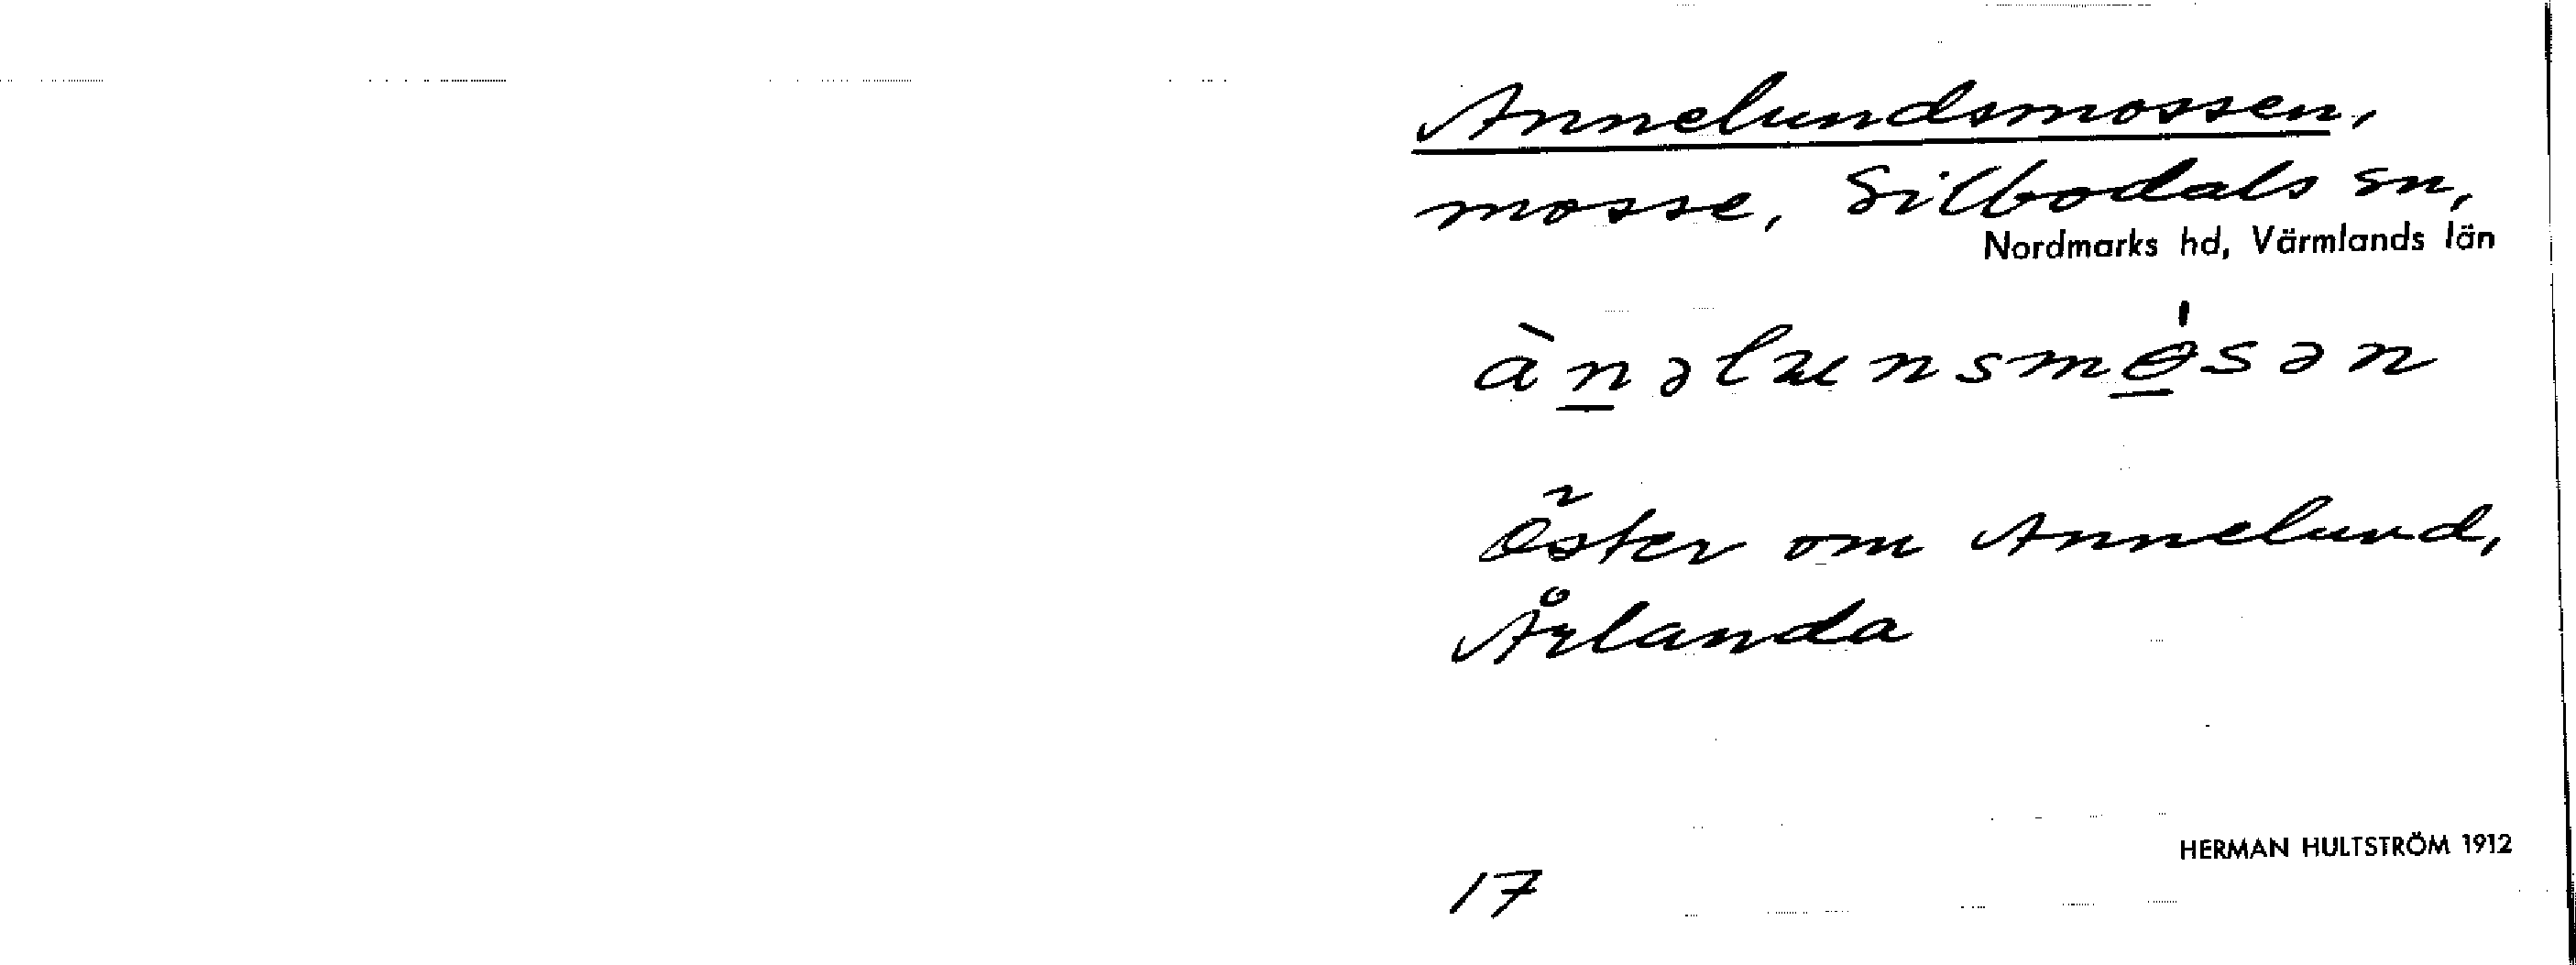 Annelundsmossen,
mosse, Silbodals sn,
Nordmarks hd, Värmlands län
ànəlunsmɵ́sən
Öster om Annelund,
Årlanda
HERMAN HULTSTRÖM 1912
17